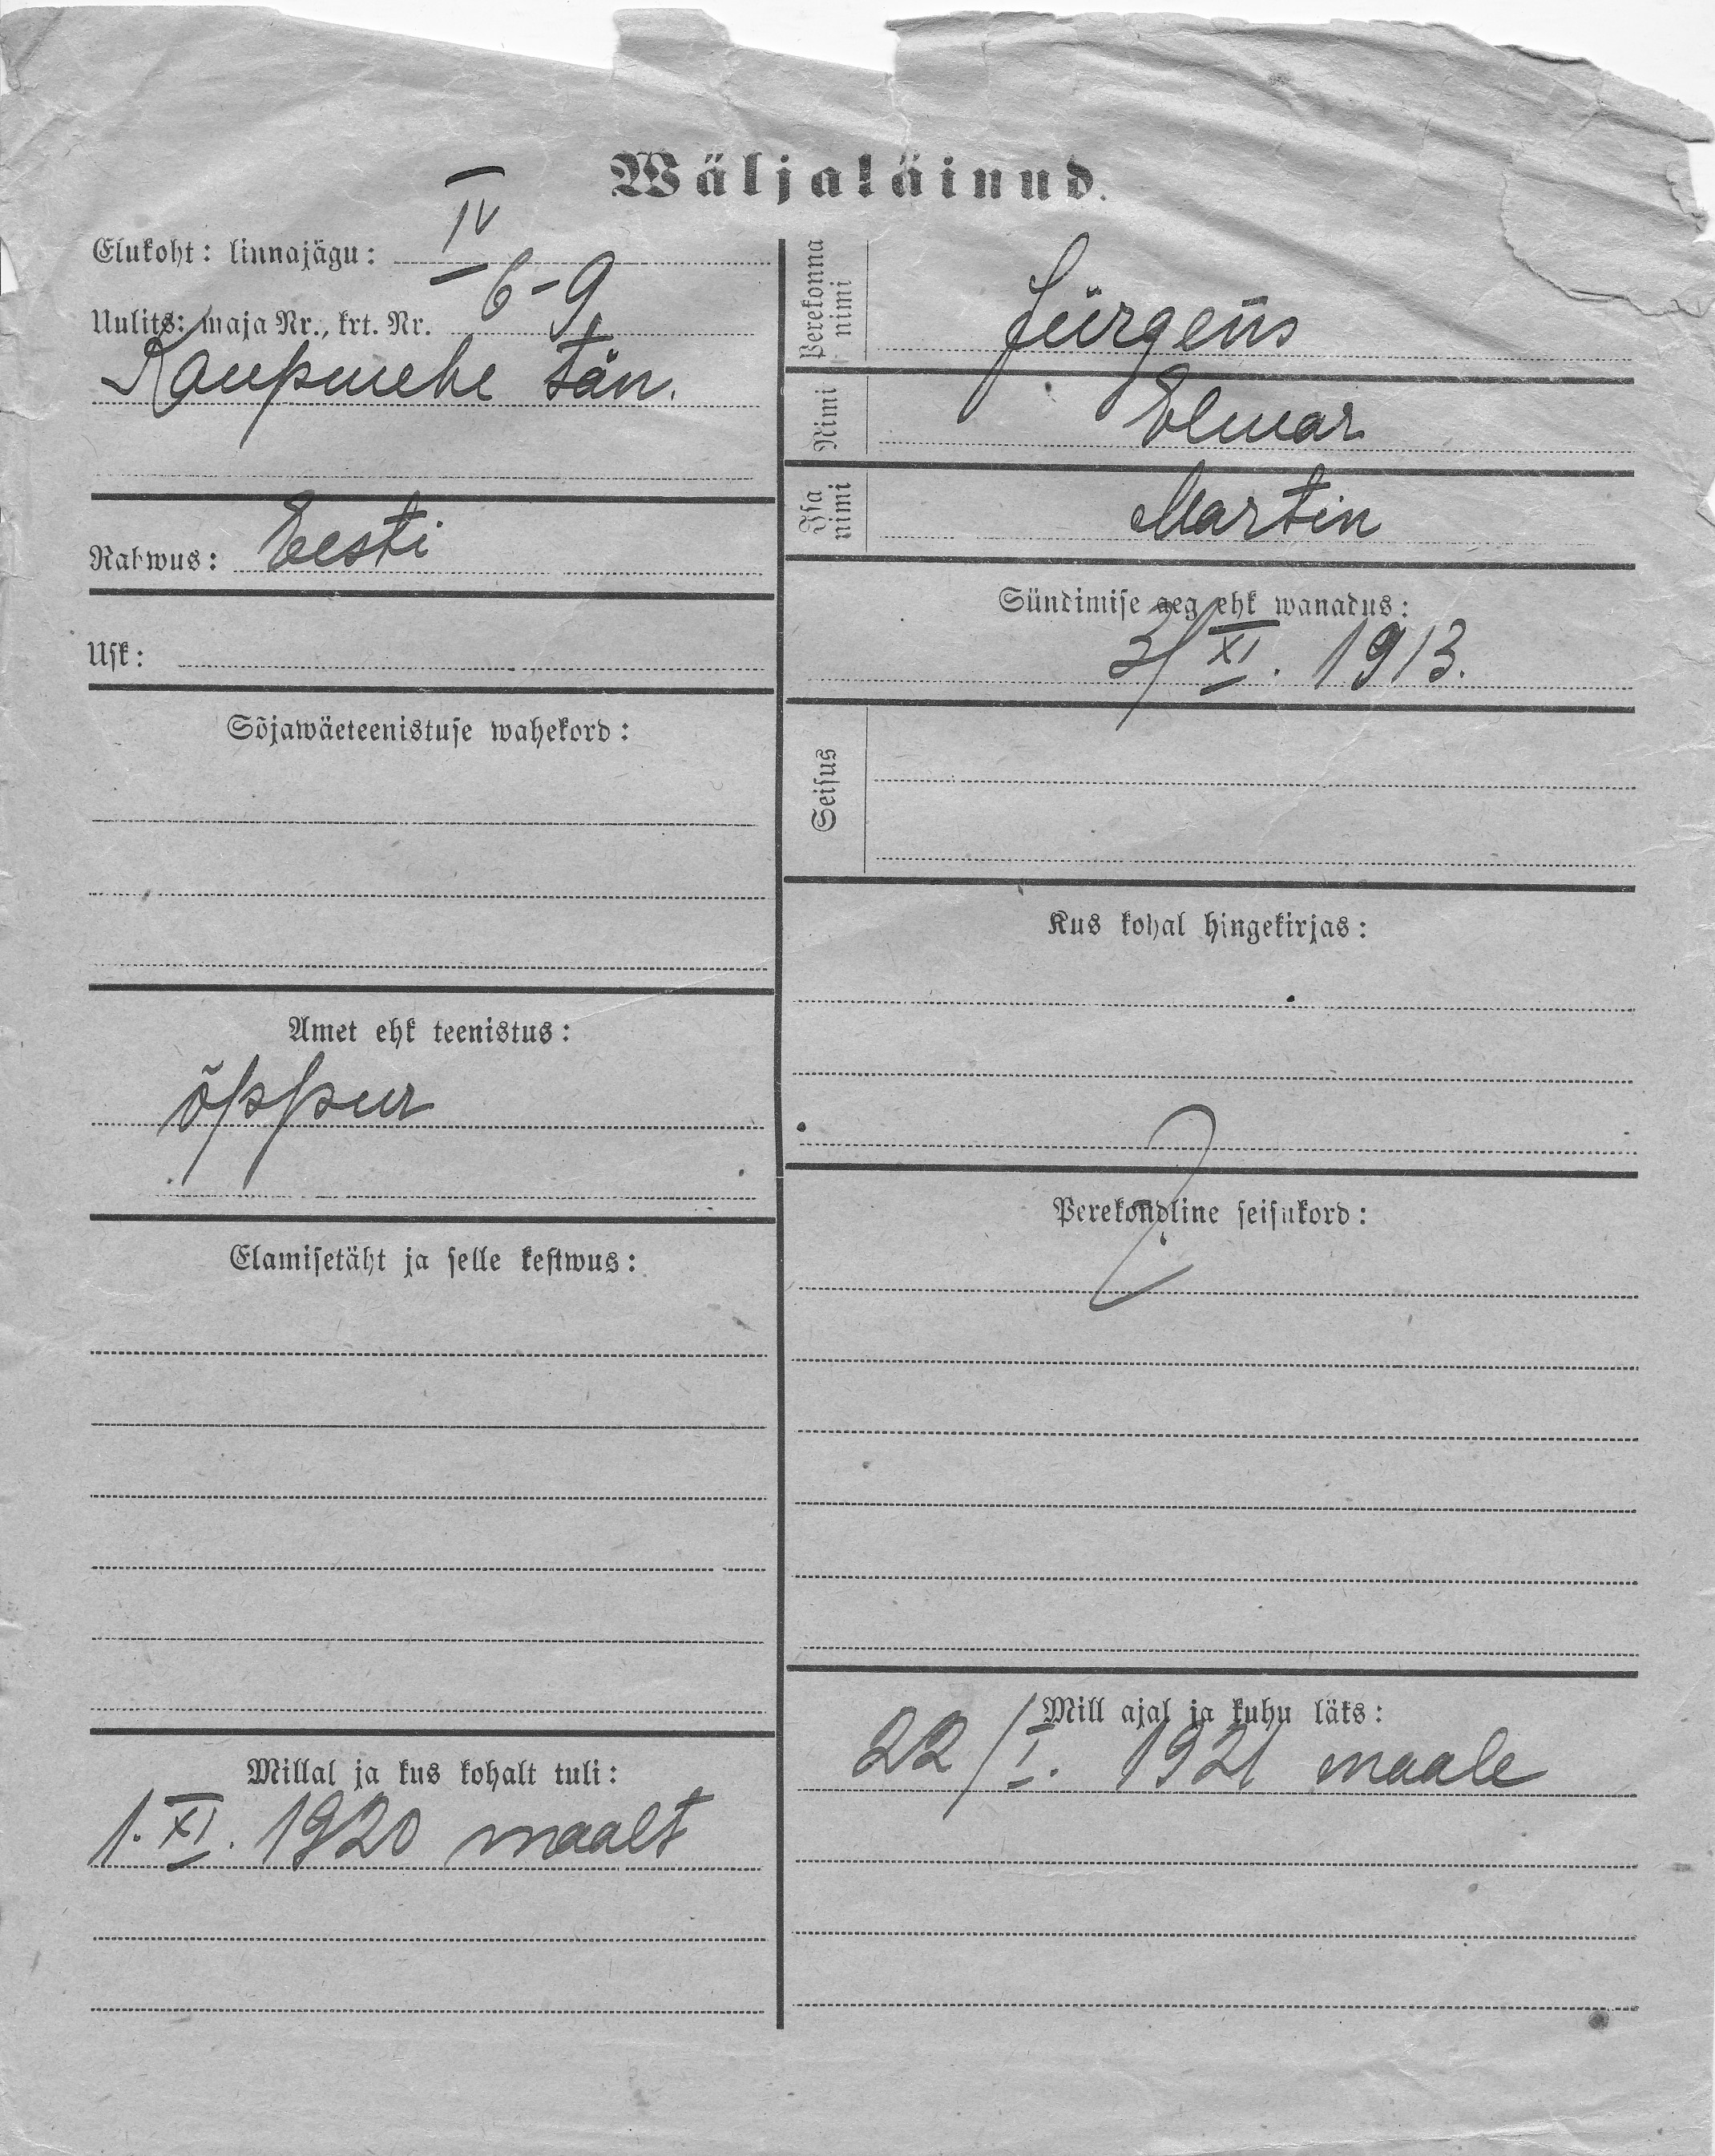 Wäljaläinud.
Elukoht: linnajägu: IV
Uulits: maja Nr., krt. Nr. 6-9
Kaupmehe tän.
Rahwus: Eesti
Usk:
Sõjawäeteenistuse wahekord:
Amet ehk teenistus:
õppur
Elamisetäht ja selle kestwus:
Millal ja kus kohalt tuli:
1. XI. 1920 maalt
Perekonna nimi Jürgens
Nimi Elmar
Isa nimi Martin
Sündimise aeg ehk wanadus:
2/XI. 1913.
Seisus
Kus kohal hingekirjas:
Perekondline seisukord:
Mill ajal ja kuhu läks:
22/I. 1921 maale